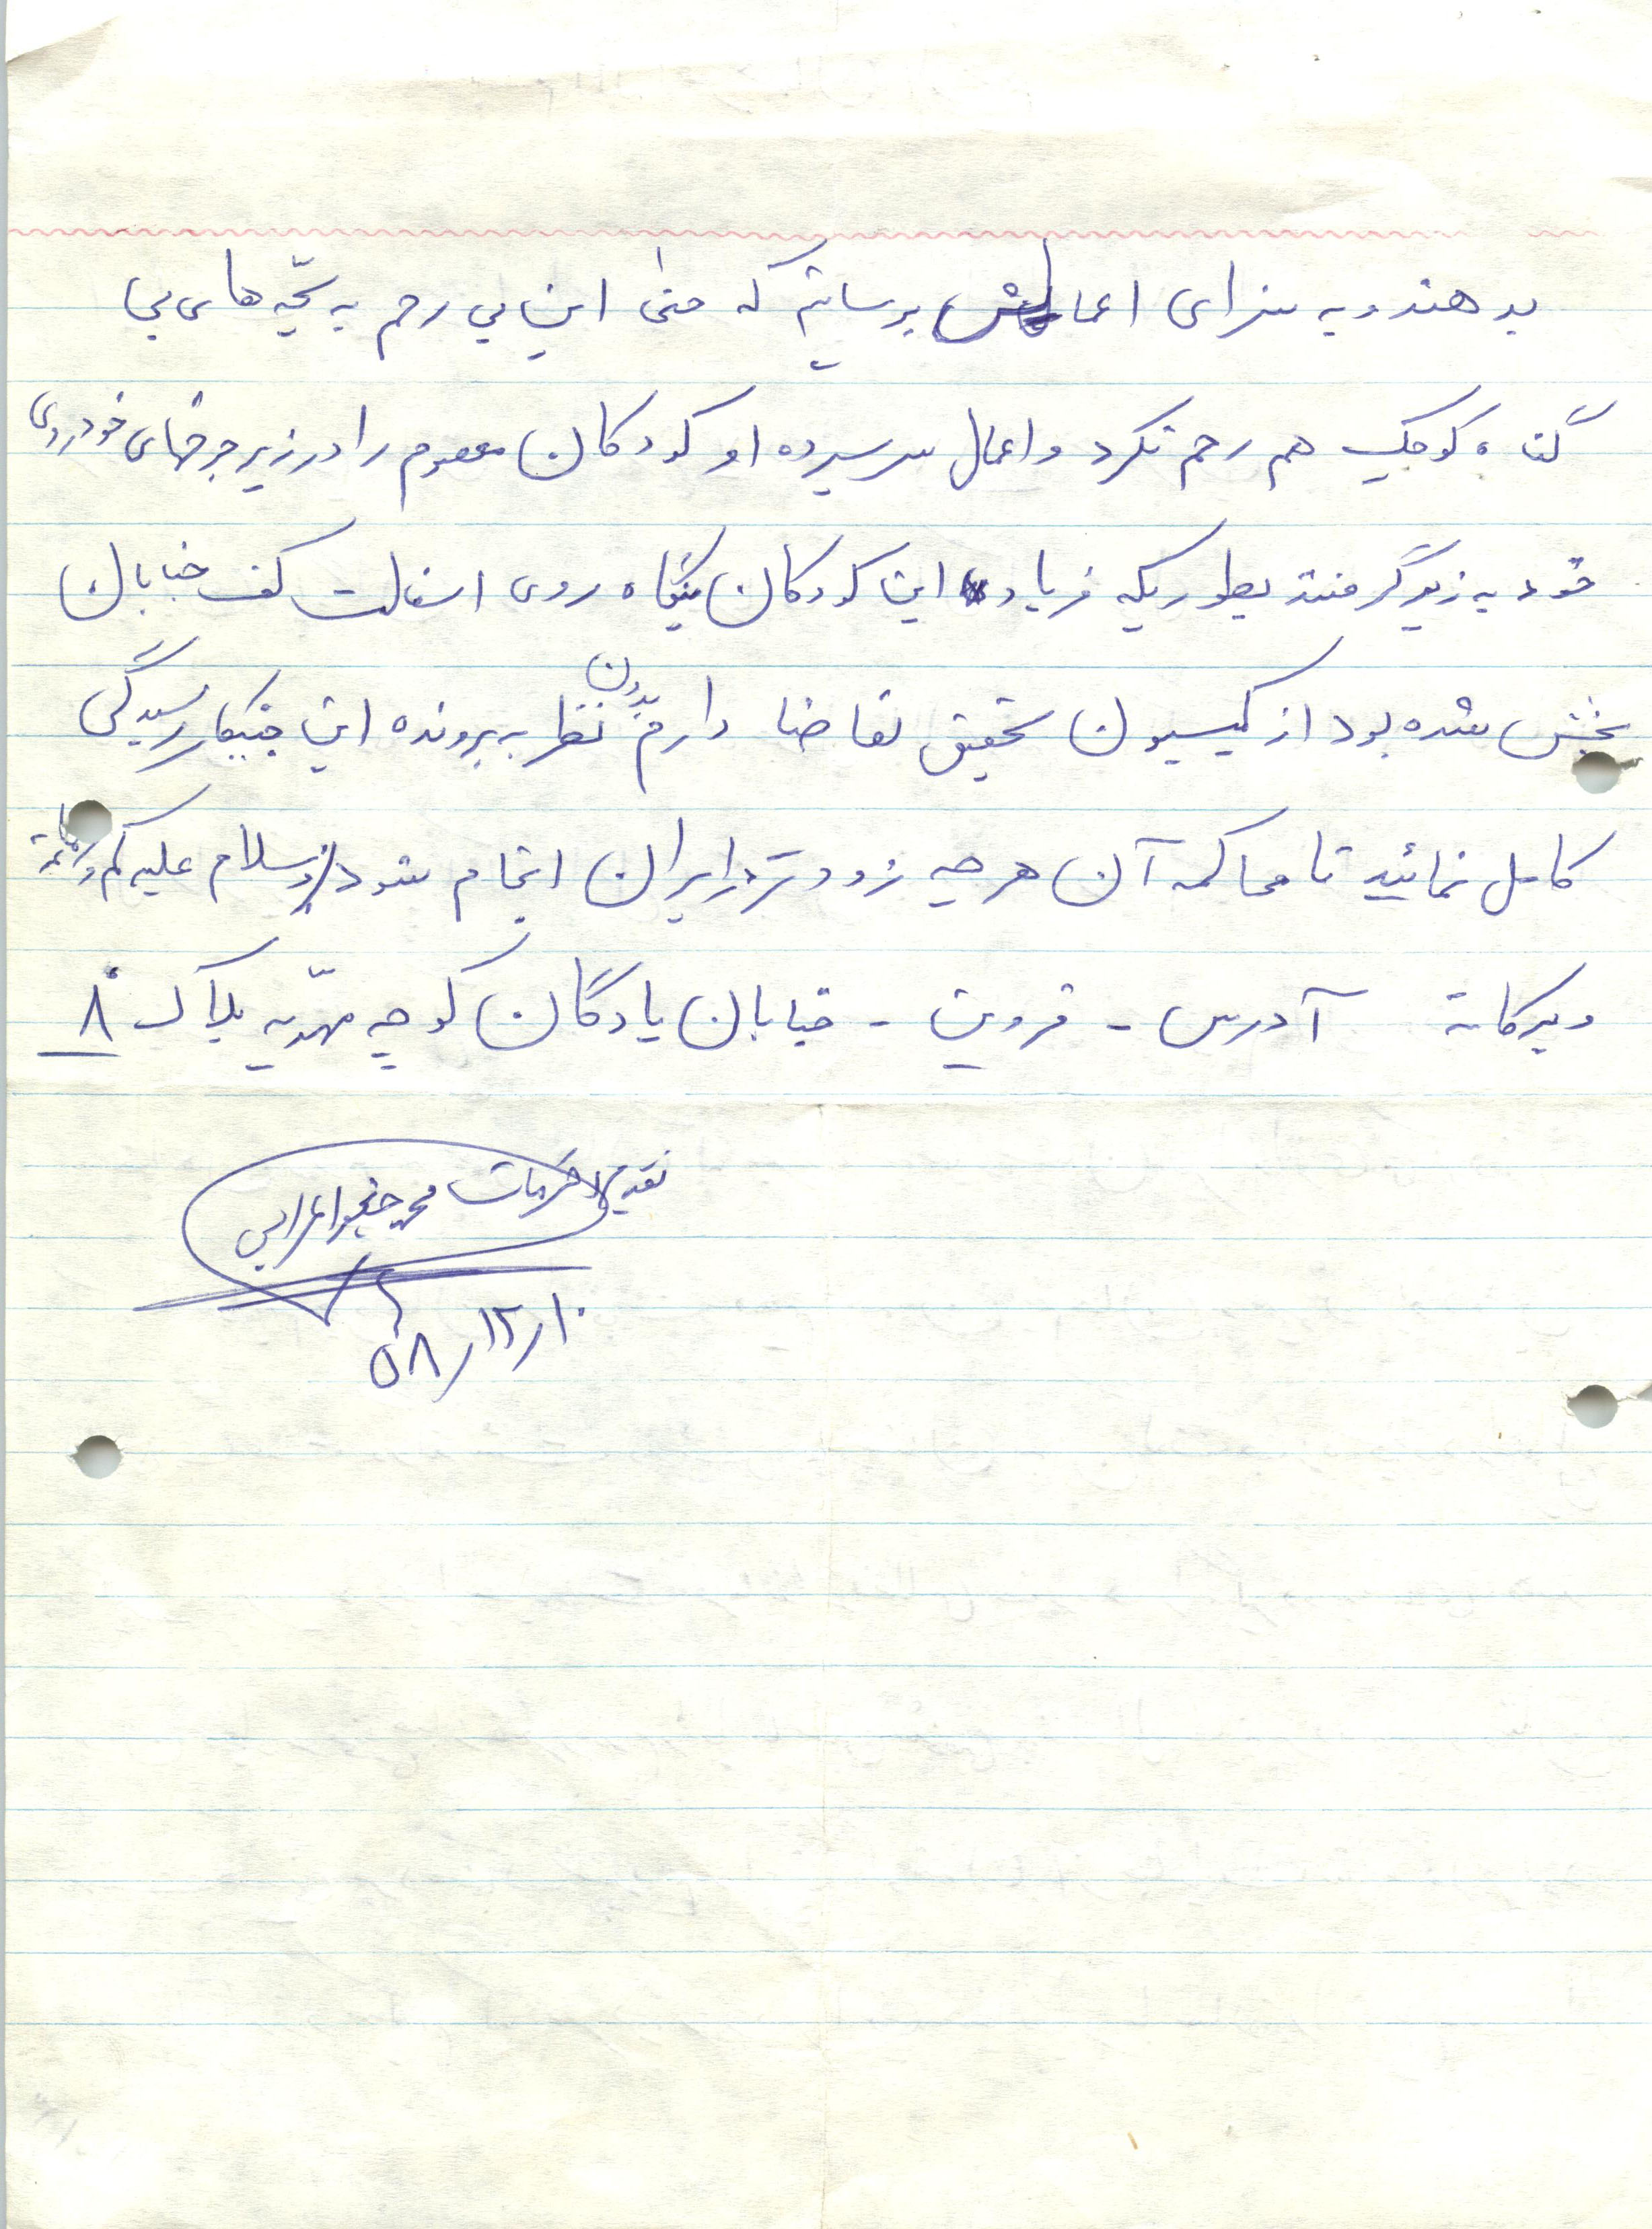 بدهند و به سزای اعمالش برسانیم که حتی این بی رحم به بچّه های بی
گناه کوچک هم رحم نکرد و اعمال سرسپرده او کودکان معصوم را در زیر چرخهای خودروی
خود به زیر گرفتند بطوریکه فریاد این کودکان بیگناه روی اسفالت کف خیابان
پخش شده بود از کمیسیون تحقیق تقاضا دارم بدون نظر به پرونده این جنایتکار رسیدگی
کامل نمائید تا محاکمه آن هر چه زودتر در ایران انجام شود والسلام علیکم و رحمة
وبرکاته آدرس - قزوین - خیابان پادگان کوچه مهدّیه پلاک ۸
تقدیم احترامات محمد جعفر اعرابی
۵۸/۱۲/۱۰